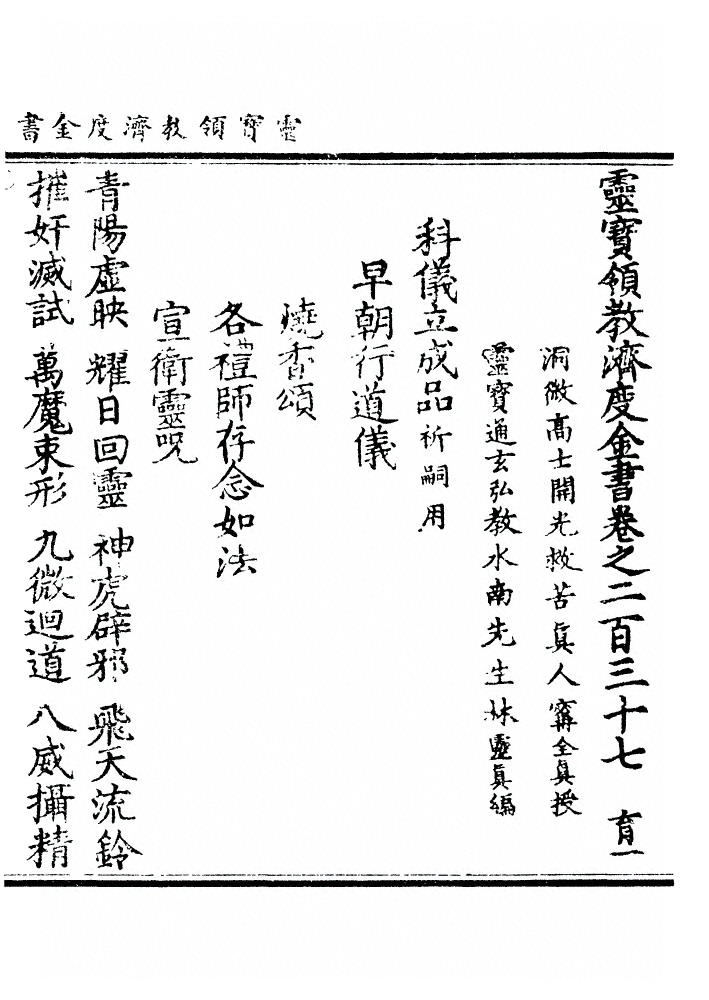 靈寳領教濟度金書
靈寳領教濟度金書卷之二百三十七 育一
洞微高士開光救苦真人寗全真授
靈寳通玄弘教水南先生林靈真編
科儀立成品祈嗣用
早朝行道儀
燒香頌
各禮師存念如法
宣衛靈呪
青陽虛映 耀日回靈 神虎辟邪 飛天流鈴
摧奸滅試 萬魔束形 九微迴道 八威攝精